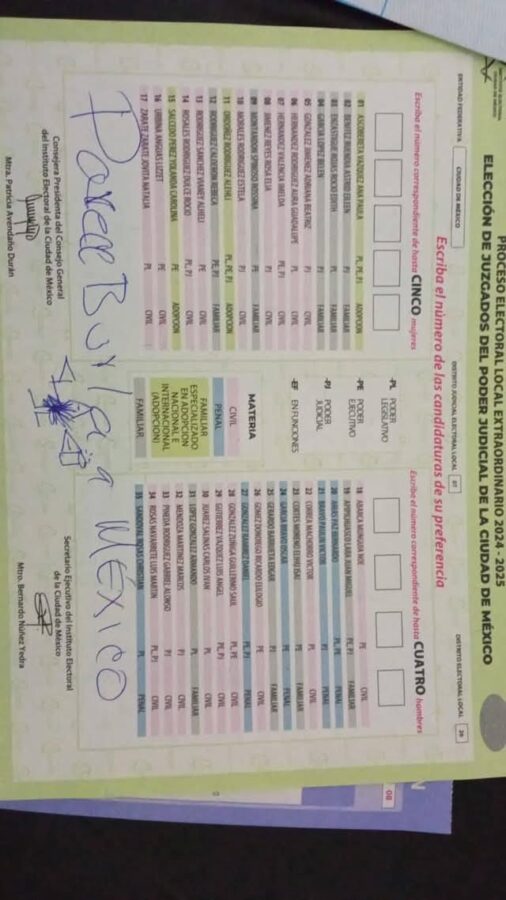 PROCESO ELECTORAL LOCAL EXTRAORDINARIO 2024 - 2025
ELECCIÓN DE JUZGADOS DEL PODER JUDICIAL DE LA CIUDAD DE MÉXICO
ENTIDAD FEDERATIVA CIUDAD DE MÉXICO DISTRITO JUDICIAL ELECTORAL LOCAL 07 DISTRITO ELECTORAL LOCAL 26
Escriba el número de las candidaturas de su preferencia
Escribe el número correspondiente de hasta CINCO mujeres
01 ASCOBERETA VAZQUEZ ANA PAULA PL, PE, PJ ADOPCION
02 BENITEZ BUENDIA ASTRID EILEEN PJ FAMILIAR
03 ENCASTIGUE ROJAS ROCIO EDITH PJ FAMILIAR
04 GARCIA LOPEZ BELEN PJ FAMILIAR
05 GONZALEZ JIMENEZ ADRIANA BEATRIZ PL CIVIL
06 HERNANDEZ RODRIGUEZ AURA GUADALUPE PL CIVIL
07 HERNANDEZ VALENCIA IMELDA PL, PJ CIVIL
08 JIMENEZ REYES ROSA ELIA PJ CIVIL
09 MONTANDON SPINOSO ROSSINA PE FAMILIAR
10 MORALES RODRIGUEZ ESTELA PJ CIVIL
11 ORDOÑEZ RODRIGUEZ ALEHLI PL, PE, PJ ADOPCION
12 RODRIGUEZ CALDERON REBECA PE, PJ FAMILIAR
13 RODRIGUEZ SANCHEZ VIANEY ALHELI PE CIVIL
14 ROSALES RODRIGUEZ DULCE ROCIO PL, PJ CIVIL
15 SALCEDO PEREZ YOLANDA CAROLINA PE ADOPCION
16 URBINA ANGUAS LIZZET PE CIVIL
17 ZARATE ZARATE JOVITA NATALIA PL CIVIL
-PL PODER LEGISLATIVO
-PE PODER EJECUTIVO
-PJ PODER JUDICIAL
-EF EN FUNCIONES
MATERIA
CIVIL
PENAL
FAMILIAR
ESPECIALIZADO
EN ADOPCIÓN
NACIONAL E
INTERNACIONAL
(ADOPCION)
FAMILIAR
Escribe el número correspondiente de hasta CUATRO hombres
18 ABARCA MUNGUIA NOE PE CIVIL
19 APIPILHUASCO LARA JUAN MIGUEL PL, PJ FAMILIAR
20 ARIAS PAZ BERNARDO PL, PE PENAL
21 BRAVO PUENTE VICTOR PJ PENAL
22 CORREA MACHORRO VICTOR PL CIVIL
23 CORTES MORENO ELIHU ISAI PJ CIVIL
24 GARCIA BRAVO OSCAR PE PENAL
25 GERARDO BARRUETA EDGAR PJ FAMILIAR
26 GOMEZ DOMINGO RICARDO EULOGIO PE CIVIL
27 GONZALEZ RAMIREZ DANIEL PL, PJ PENAL
28 GONZALEZ ZUÑIGA GUILLERMO SAUL PL, PE CIVIL
29 GUTIERREZ VAZQUEZ LUIS ANGEL PE, PJ CIVIL
30 JUAREZ SALINAS CARLOS IVAN PL CIVIL
31 LOPEZ GONZALEZ ARMANDO PL FAMILIAR
32 MENDOZA MARTINEZ MARCOS PJ CIVIL
33 PINEDA RODRIGUEZ GABRIEL ALONSO PJ CIVIL
34 ROSAS NAVARRETE LUIS MARTIN PL, PJ CIVIL
35 SANDOVAL ROJAS CHRISTIAN PL PENAL
Consejera Presidenta del Consejo General
del Instituto Electoral de la Ciudad de México
Mtra. Patricia Avendaño Durán
Secretario Ejecutivo del Instituto Electoral
de la Ciudad de México
Mtro. Bernardo Núñez Yedra
08